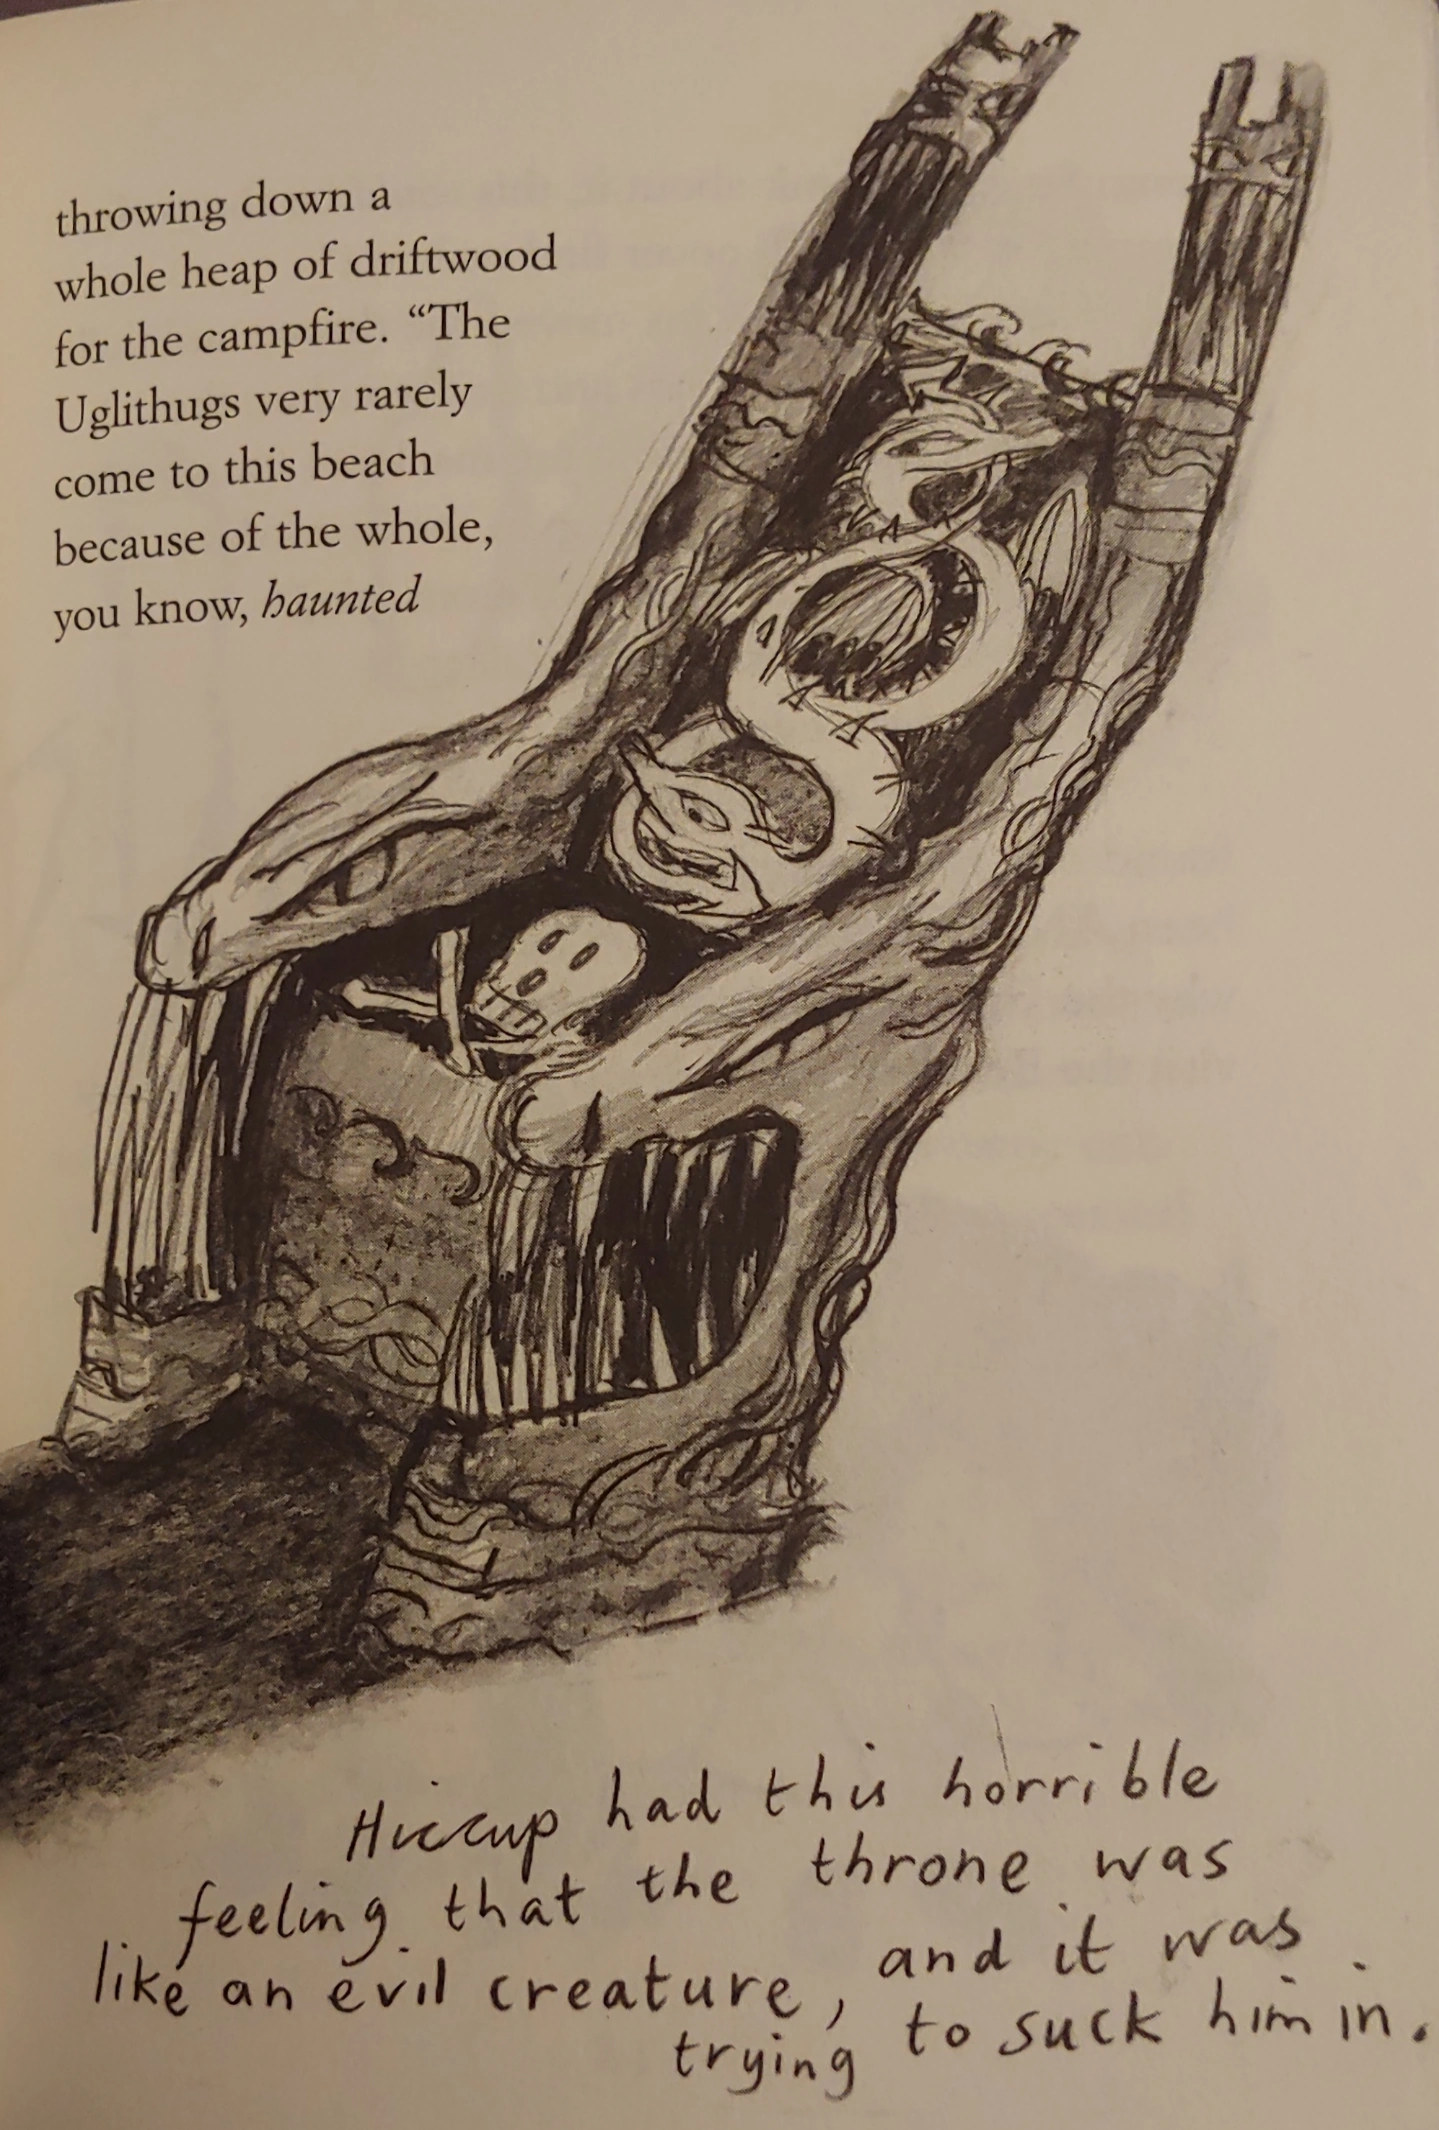 throwing down a
whole heap of driftwood
for the campfire. “The
Uglithugs very rarely
come to this beach
because of the whole,
you know, haunted
Hiccup had this horrible
feeling that the throne was
like an evil creature, and it was
trying to suck him in.